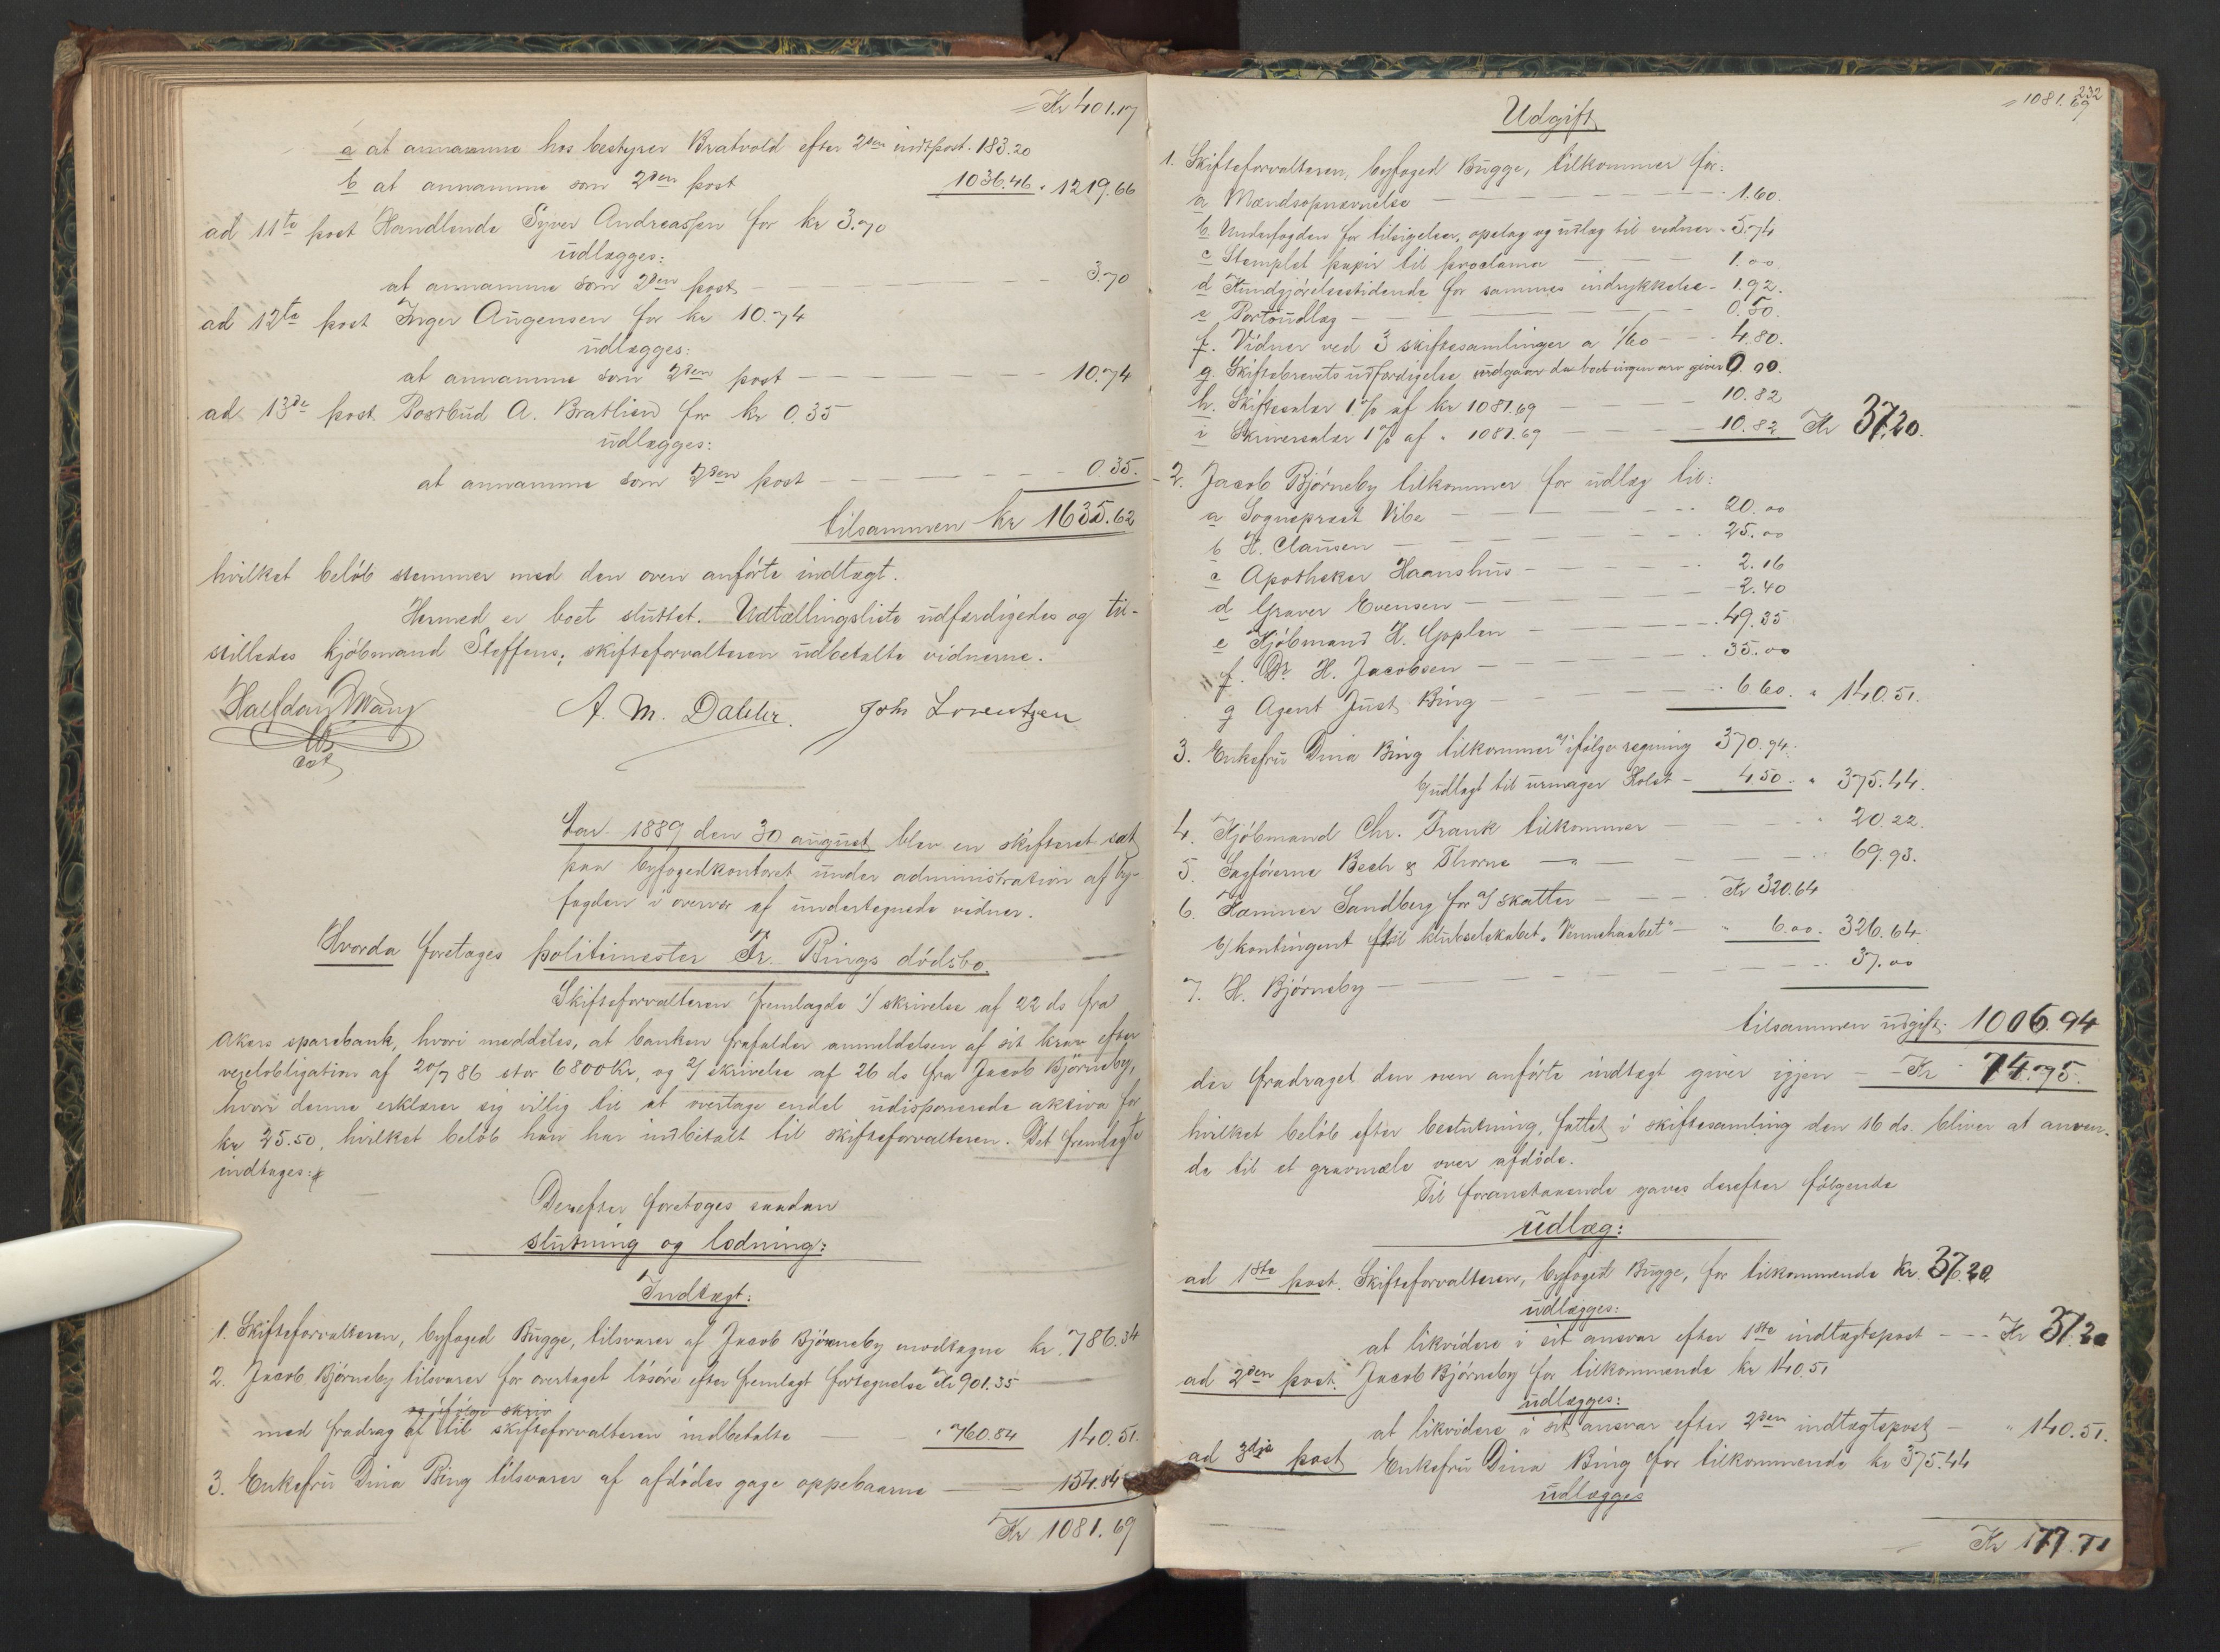 = Kr 401.17
a at annamme hos bestyrer Bratvold efter 2den indtpost. 183.20
b at annamme som 2den post 1036.46 " 1219.66
ad 11te post Handlende Syver Andreassen for kr 3.70
udlægges:
at annamme som 2den post 3.70
ad 12te post Inger Augensen for kr 10.74
udlægges:
at annamme som 2den post 10.74
ad 13de post Postbud A. Bratlien for kr 0.35
udlægges:
at annamme som 2den post 0.35.
tilsammen kr 1635.62
hvilket beløb stemmer med den oven anførte indtægt.
Hermed er boet sluttet. Udtællingsliste udfærdigedes og til-
stilledes kjøbmand Steffens; skifteforvalteren udbetalte vidnerne.
Halfdan A. M. Dahler. Johs Lorentzen
Aar 1889 den 30 august blev en skifteret sat
paa byfogedkontoret under administration af by-
fogden i overvær af undertegnede vidner.
Hvorda foretoges politimester Fr. Bings dødsbo.
Skifteforvalteren fremlagde 1/ skrivelse af 22 ds fra
Akers sparebank, hvori meddeles, at banken frafalder anmeldelsen af sit krav efter
vexelobligation af 20/7 86 stor 6800 Kr, og 2/ skrivelse af 26 ds fra Jacob Bjørneby,
hvori denne erklærer sig villig til at overtage endel udisponerede aktiva for
kr 25.50, hvilket beløb han har indbetalt til skifteforvalteren. Det fremlagte
indtages:
Derefter foretoges saadan
slutning og lodning:
Indtægt:
1. Skifteforvalteren, byfoged Bugge, tilsvarer af Jacob Bjørneby modtagne kr. 786.34
2. Jacob Bjørneby tilsvarer for overtaget løsøre efter fremlagt fortegnelse Kr 901.35
og ifølge skriv
med fradrag af til skifteforvalteren indbetalte " 760.84 140.51.
3. Enkefru Dina Bing tilsvarer af afdødes gage oppebaarne 154.84
Kr 1081.69
232
= 1081.69
Udgift
1. Skifteforvalteren, byfoged Bugge, tilkommer for:
a Mændsopnævnelse 1.60.
b. Underfogden for tilsigelser, opslag og udlæg til vidner 5.74
c Stemplet papir til proclama 1.00
d Kundgjørelsestidende for sammes indrykkelse 1.92.
e Portoudlæg 0.50.
f. Vidner ved 3 skiftesamlinger a 1/60 4.80.
g. Skiftebrevets udfærdigelse udgaar da boet ingen arv giver 0.00.
h. Skiftesalær 1% af kr 1081.69 10.82
i Skriversalær 1% af " 1081.69 10.82 Kr 37.20.
2. Jacob Bjørneby tilkommer for udlæg til:
a Sogneprest Vibe 20.00
b H. Clausen 25.00
c Apotheker Haanshus 2.16
d Graver Evensen 2.40
e Kjøbmand H. Gpplen 49.35
f. Dr H. Jacobsen 35.00
g Agent Just Bing 6.60. " 140.51.
3. Enkefru Dina Bing tilkommer a/ ifølge regning 370.94.
b/ udlagt til urmager Holst 4.50 " 375.44.
4. Kjøbmand Chr. Frank tilkommer 20.22.
5. Sagførerne Bech & Thorne 69.93.
6. Kæmner Sandberg for a/ skatter Kr 320.64
b/ kontingent til klubselskabet "Vennehaabet" 6.00. 326.64.
7. H. Bjørneby 37.00
tilsammen udgift 1006.94
der fradraget den oven anførte indtægt giver igjen Kr 74.75.
hvilket beløb efter beslutning, fattet i skiftesamling den 16 ds. bliver at anven-
de til et gravmæle over afdøde.
Til foranstaaende gaves derefter følgende
udlæg:
ad 1ste post. Skifteforvalteren, byfoged Bugge, for tilkommende kr. 37.20.
udlægges:
at likvidere i sit ansvar efter 1ste indtægtspost Kr 37.20
ad 2den post. Jacob Bjørneby for tilkommende kr 140.51
udlægges:
at likvidere i sit ansvar efter 2den indtægtspost " 140.51.
ad 3die post Enkefru Dina Bing for tilkommende kr 375.44
udlægges
Kr 177.71